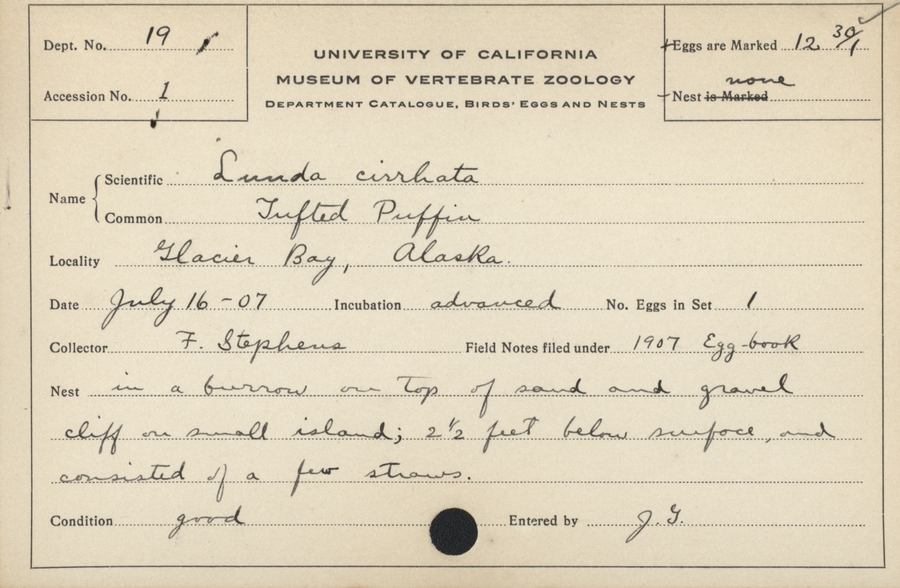 Dept. No. 19
Accession No. 1
UNIVERSITY OF CALIFORNIA
MUSEUM OF VERTEBRATE ZOOLOGY
DEPARTMENT CATALOGUE, BIRDS' EGGS AND NESTS
Eggs are Marked 12 30/1
none
Nest is Marked
Name
Scientific Lunda cirrhata
Common Tufted Puffin
Locality Glacier Bay, Alaska.
Date July 16-07 Incubation advanced No. Eggs in Set 1
Collector F. Stephens Field Notes filed under 1907 Egg-book
Nest in a burrow on top of sand and gravel
cliff on small island; 2 1/2 feet below surface, and
consisted of a few straws.
Condition good Entered by J.G.